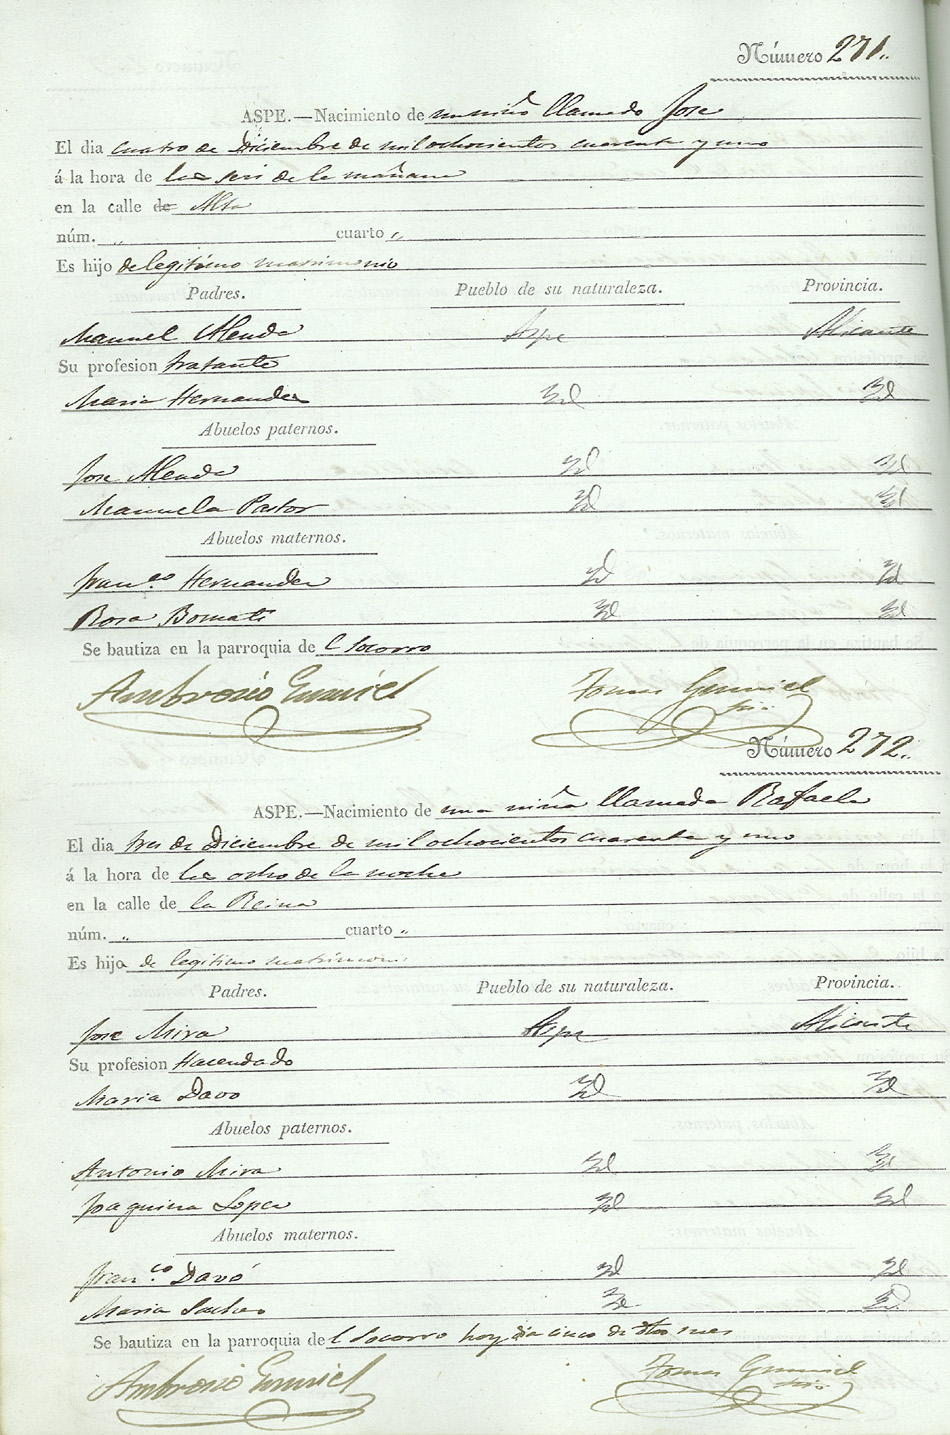 Número 271.
ASPE.—Nacimiento de un niño llamado Jose
El dia cuatro de Diciembre de mil ochocientos cuarenta y uno
á la hora de las seis de la mañana
en la calle de Alta
núm. „ cuarto „
Es hijo de legitimo matrimonio
Padres. Pueblo de su naturaleza. Provincia.
Manuel Alenda Aspe Alicante
Su profesion tratante
Maria Hernandez Id Id
Abuelos paternos.
Jose Alenda Id Id
Manuela Pastor Id Id
Abuelos maternos.
Franco Hernandez Id Id
Rosa Bornati Id Id
Se bautiza en la parroquia del Socorro
Ambrosio Gumiel Tomas Gumiel
Número 272.
ASPE.—Nacimiento de una niña llamada Rafaela
El dia tres de Diciembre de mil ochocientos cuarenta y uno
á la hora de las ocho de la noche
en la calle de la Reina
núm. „ cuarto „
Es hijo de legitimo matrimonio
Padres. Pueblo de su naturaleza. Provincia.
Jose Mira Aspe Alicante
Su profesion Hacendado
Maria Davo Id Id
Abuelos paternos.
Antonio Mira Id Id
Joaquina Lopez Id Id
Abuelos maternos.
Franco Davó Id Id
Maria Id Id
Se bautiza en la parroquia del Socorro hoy dia cinco de dho mes
Ambrosio Gumiel Tomas Gumiel